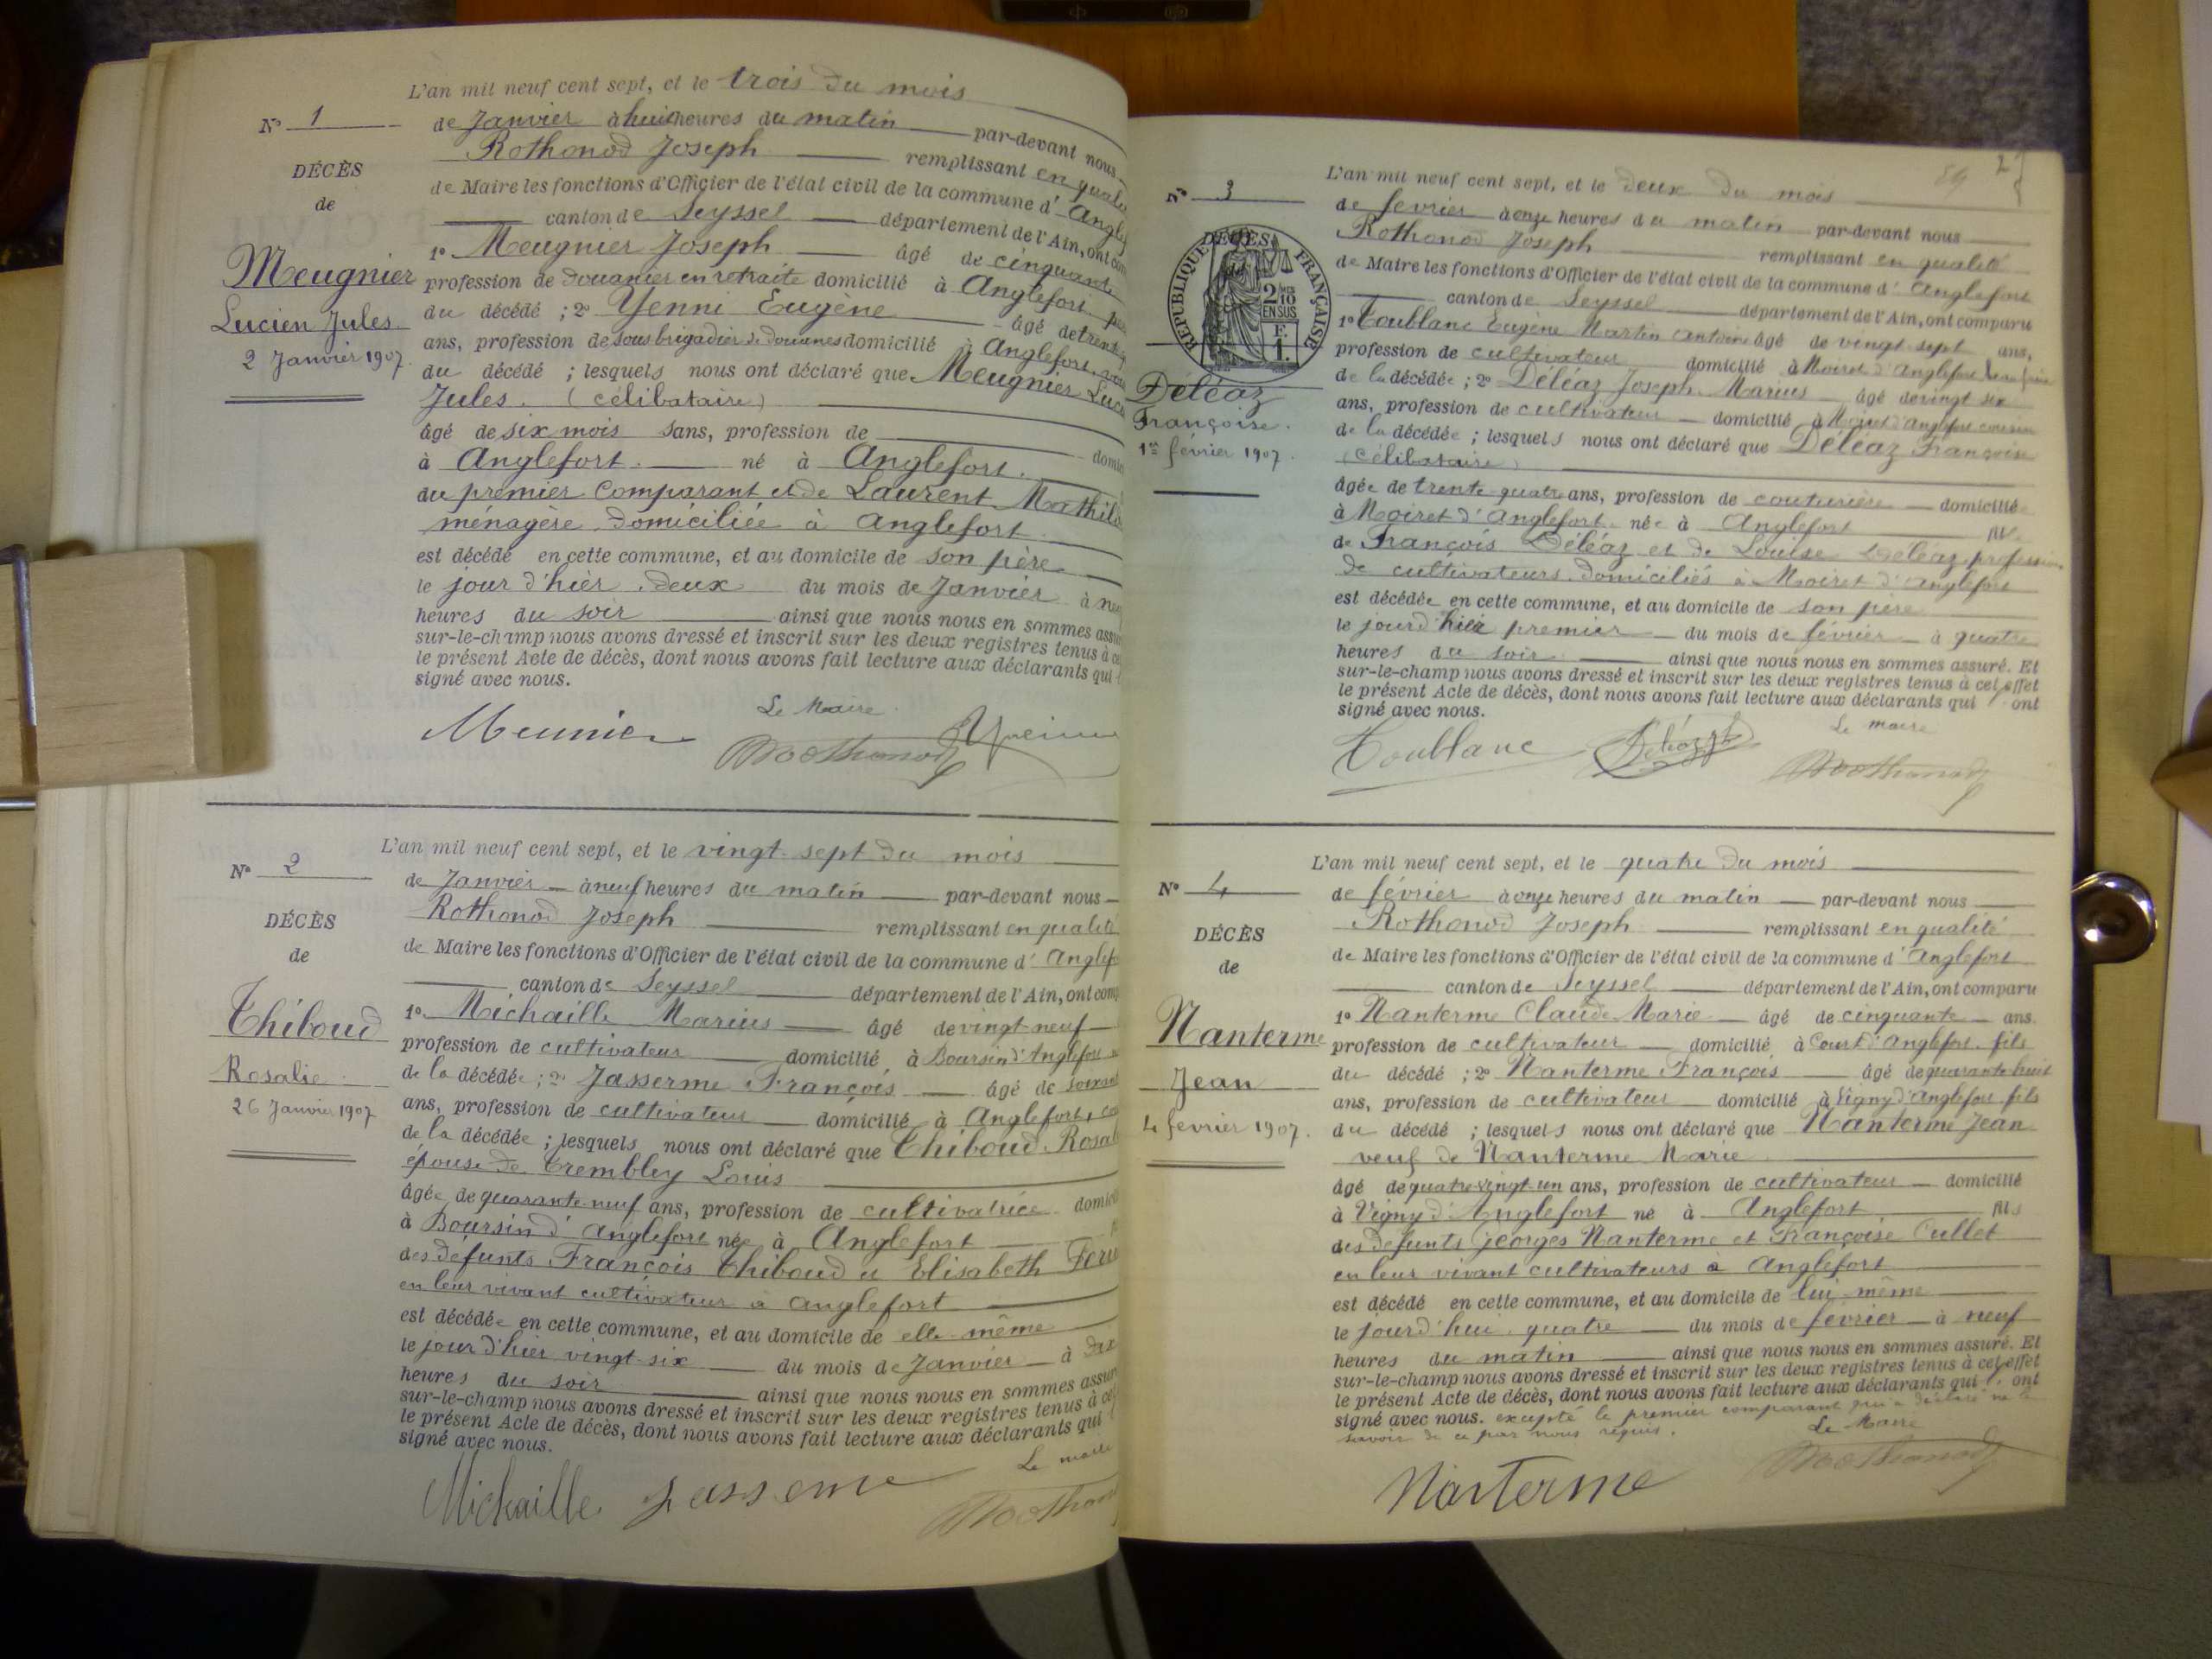 L'an mil neuf cent sept, et le trois du mois
N° 1
de Janvier à huit heures du matin par-devant nous
Rothonod Joseph remplissant en qualité
DÉCÈS
de Maire les fonctions d'Officier de l'état civil de la commune d' Anglef
de
canton de Seyssel département de l'Ain, ont com
Meugnier
1° Meugnier Joseph âgé de cinquante
profession de douanier en retraite domicilié à Anglefort
Lucien Jules
du décédé ; 2° Yenni Eugène âgé de
2 Janvier 1907.
ans, profession de sous brigadier de douanes domicilié à Anglefort,
du décédé ; lesquels nous ont déclaré que Meugnier Luc
Jules. (célibataire)
âgé de six mois sans, profession de
à Anglefort. né à Anglefort.
du premier comparant et de Laurent Mathil
ménagère domiciliée à Anglefort
est décédé en cette commune, et au domicile de son père
le jour d'hier. deux du mois de Janvier à
heures du soir ainsi que nous nous en sommes assu
sur-le-champ nous avons dressé et inscrit sur les deux registres tenus à ce
le présent Acte de décès, dont nous avons fait lecture aux déclarants qui
signé avec nous.
Le Maire
Meunier Rothonod
L'an mil neuf cent sept, et le vingt-sept du mois
N° 2
de Janvier à neuf heures du matin par-devant nous
Rothonod Joseph remplissant en qualité
DÉCÈS
de Maire les fonctions d'Officier de l'état civil de la commune d' Anglef
de
canton de Seyssel département de l'Ain, ont comp
Thiboud
1° Michaille Marius âgé de vingt-neuf
profession de cultivateur domicilié à Boursin d'Anglefort
Rosalie
de la décédée ; 2° Jasserme François âgé de soixant
26 Janvier 1907
ans, profession de cultivateur domicilié à Anglefort,
de la décédée ; lesquels nous ont déclaré que Thiboud Rosal
épouse de Trembley Louis
âgée de quarante-neuf ans, profession de cultivatrice domicil
à Boursin d'Anglefort née à Anglefort
des défunts François Thiboud et Elisabeth
en leur vivant cultivateur à Anglefort
est décédée en cette commune, et au domicile de elle-même
le jour d'hier vingt-six du mois de Janvier à dix
heures du soir ainsi que nous nous en sommes assur
sur-le-champ nous avons dressé et inscrit sur les deux registres tenus à cet
le présent Acte de décès, dont nous avons fait lecture aux déclarants qui
signé avec nous.
Le maire
Michaille Jasserme Rothon
2
L'an mil neuf cent sept, et le deux du mois
N° 3
de février à onze heures du matin par-devant nous
Rothonod Joseph remplissant en qualité
DÉCÈS
RÉPUBLIQUE FRANÇAISE
2/10 EN SUS
F. 1.
de Maire les fonctions d'Officier de l'état civil de la commune d' Anglefort
canton de Seyssel département de l'Ain, ont comparu
1° Toublanc Eugène Martin Antoine âgé de vingt-sept ans,
profession de cultivateur domicilié à Moiret d'Anglefort
Déléaz
de la décédée ; 2° Déléaz Joseph Marius âgé de vingt six
Françoise.
ans, profession de cultivateur domicilié à Moiret d'Anglefort cousin
1er février 1907.
de la décédée ; lesquels nous ont déclaré que Déléaz Françoise
(célibataire)
âgée de trente-quatre ans, profession de couturière domicilié
à Moiret d'Anglefort née à Anglefort fille
de François Déléaz et de Louise Déléaz profession
de cultivateurs domiciliés à Moiret d'Anglefort
est décédée en cette commune, et au domicile de son père
le jour d'hier premier du mois de février à quatre
heures du soir ainsi que nous nous en sommes assuré. Et
sur-le-champ nous avons dressé et inscrit sur les deux registres tenus à cet effet
le présent Acte de décès, dont nous avons fait lecture aux déclarants qui l' ont
signé avec nous.
Le maire
Toublanc Rothonod
L'an mil neuf cent sept, et le quatre du mois
N° 4
de février à onze heures du matin par-devant nous
Rothonod Joseph remplissant en qualité
DÉCÈS
de Maire les fonctions d'Officier de l'état civil de la commune d' Anglefort
de
canton de Seyssel département de l'Ain, ont comparu
Nanterme
1° Nanterme Claude Marie âgé de cinquante ans.
profession de cultivateur domicilié à Court d'Anglefort. fils
Jean
du décédé ; 2° Nanterme François âgé de quarante-huit
ans, profession de cultivateur domicilié à Vigny d'Anglefort fils
4 février 1907.
du décédé ; lesquels nous ont déclaré que Nanterme Jean
veuf de Nanterme Marie
âgé de quatre-vingt-un ans, profession de cultivateur domicilié
à Vigny d'Anglefort né à Anglefort fils
des défunts Georges Nanterme et Françoise Cullet
en leur vivant cultivateurs à Anglefort
est décédé en cette commune, et au domicile de lui-même
le jourd'hui quatre du mois de février à neuf
heures du matin ainsi que nous nous en sommes assuré. Et
sur-le-champ nous avons dressé et inscrit sur les deux registres tenus à cet effet
le présent Acte de décès, dont nous avons fait lecture aux déclarants qui l' ont
signé avec nous. excepté le premier comparant qui a déclaré ne le
savoir de ce par nous requis.
Le Maire
Nanterme Rothonod